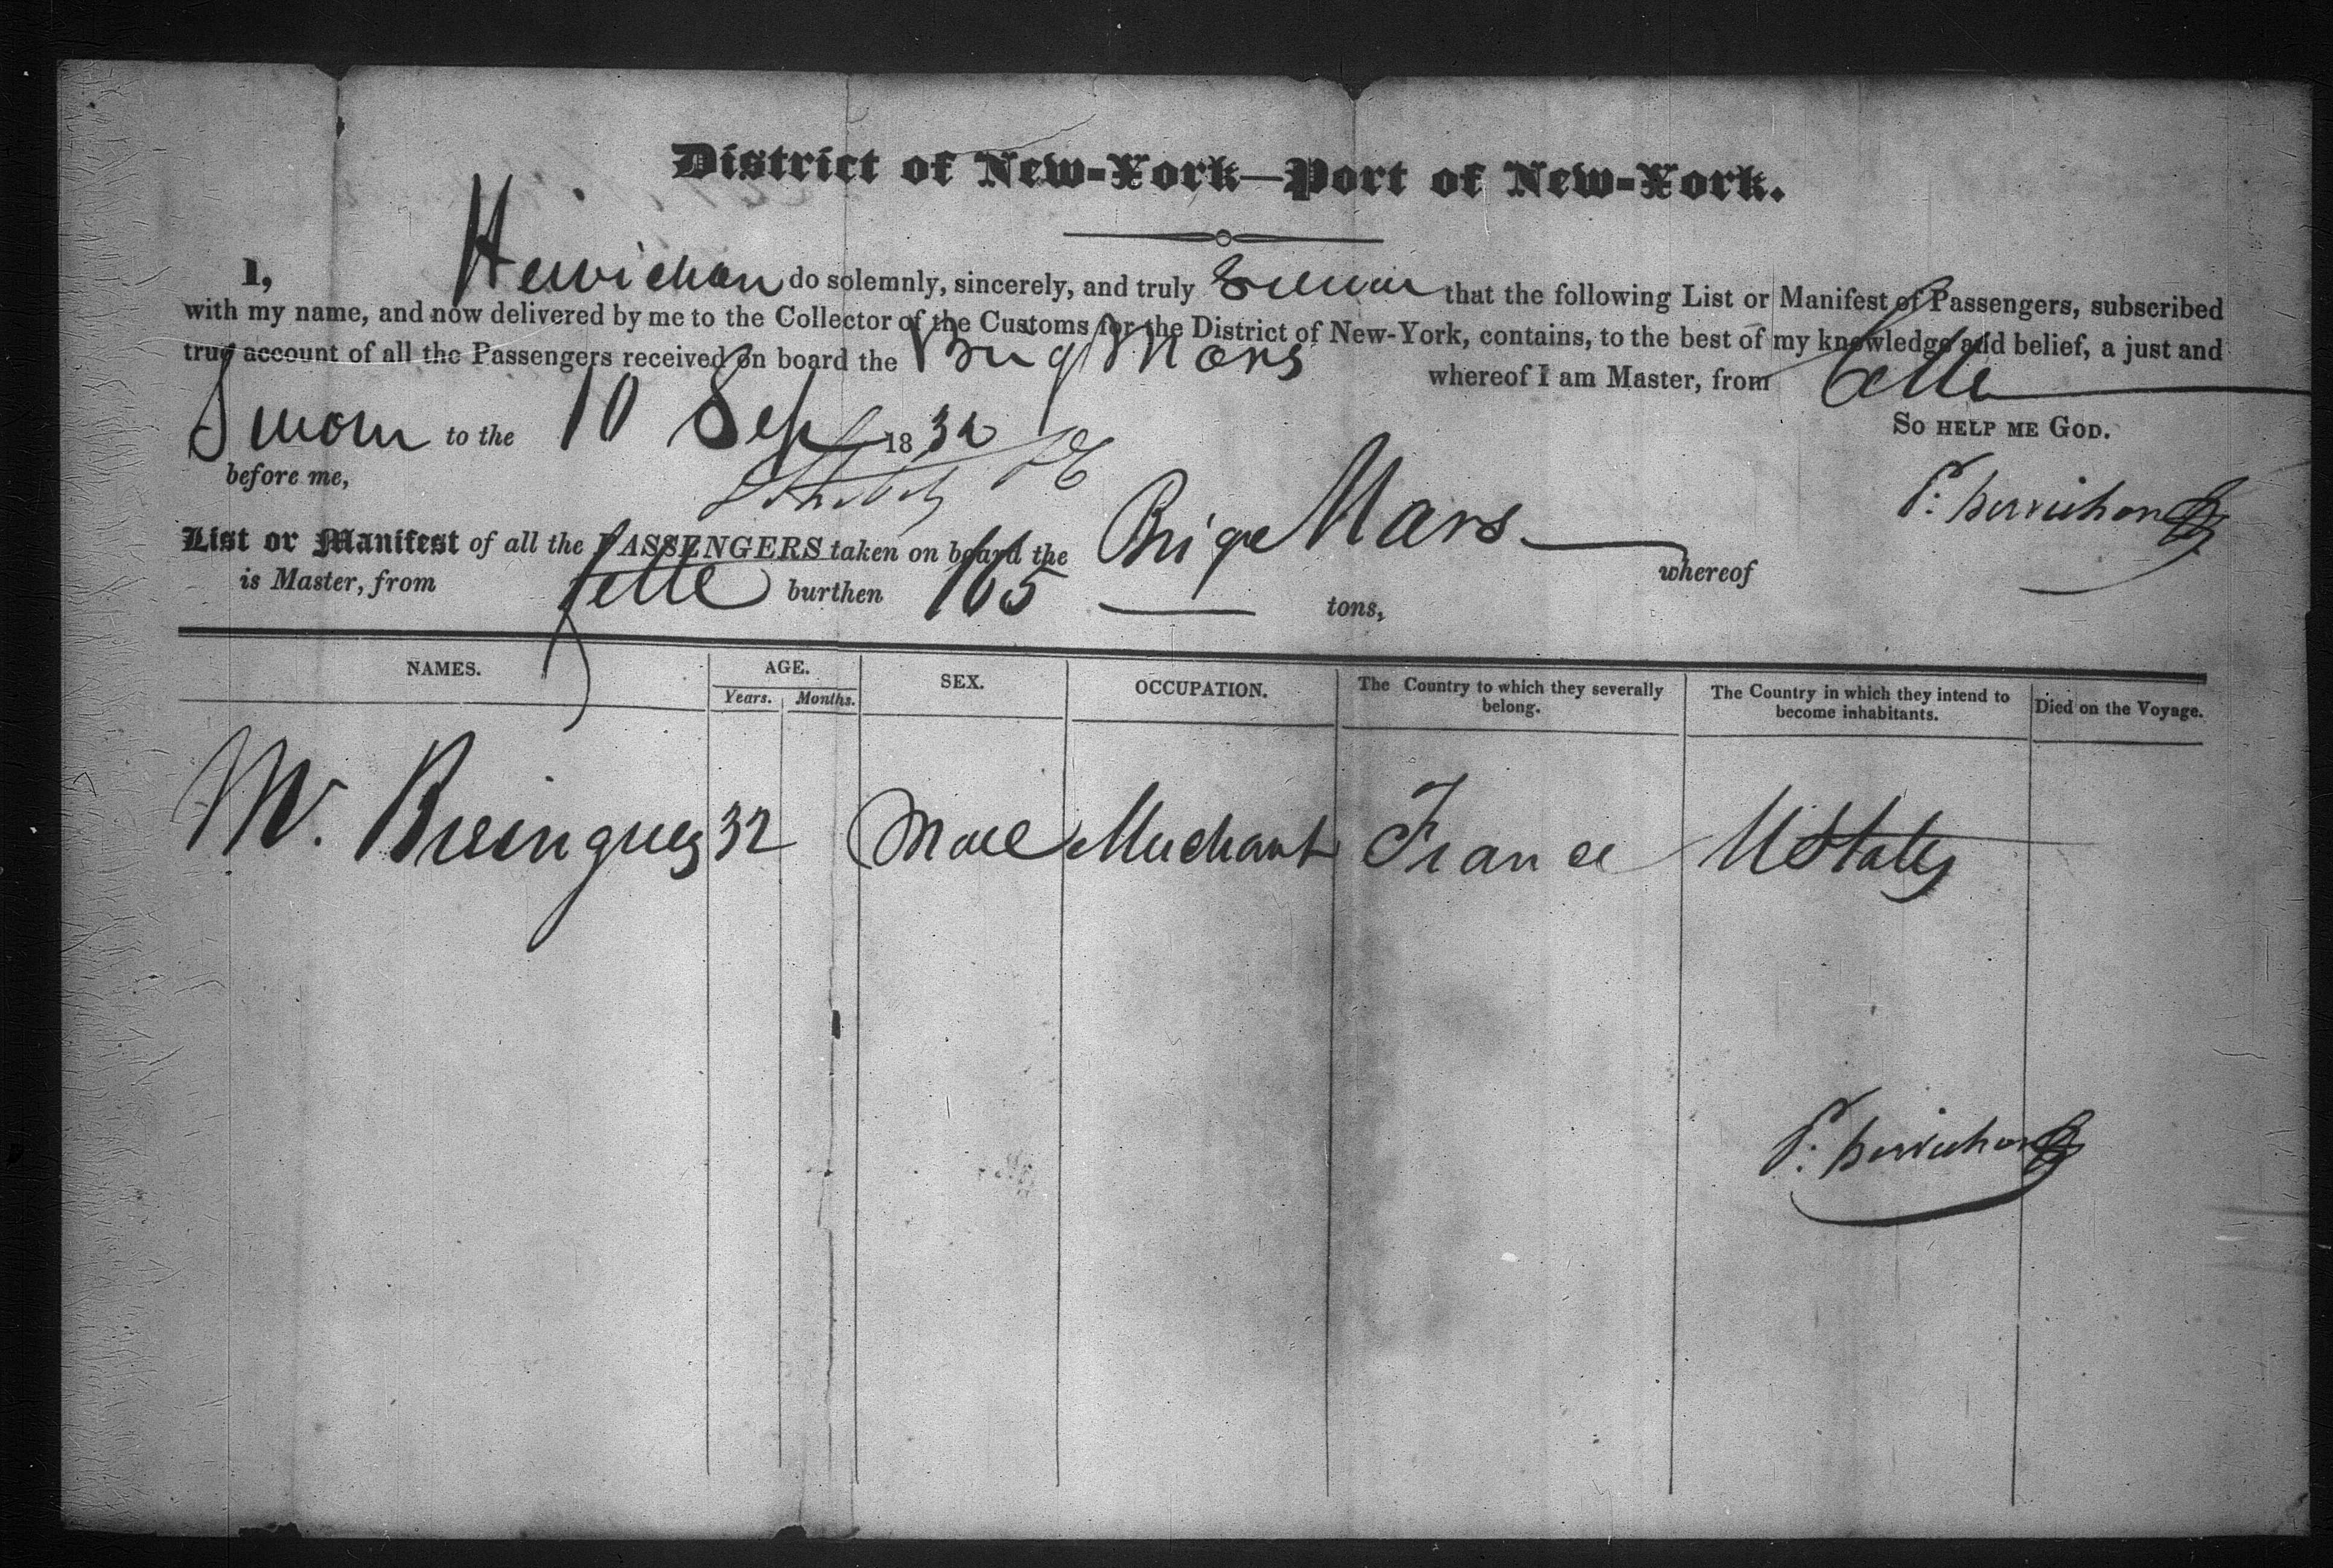 District of New-York—Port of New-York.
I, Hervichon do solemnly, sincerely, and truly Swear that the following List or Manifest of Passengers, subscribed
with my name, and now delivered by me to the Collector of the Customs for the District of New-York, contains, to the best of my knowledge and belief, a just and
true account of all the Passengers received on board the Brig Mars whereof I am Master, from Cette
Sworn to the 10 Sep 1832 So help me God.
before me,
P. hervichon
List or Manifest of all the PASSENGERS taken on board the Brig Mars whereof
is Master, from Cette burthen 165 tons,
NAMES. AGE. SEX. OCCUPATION. The Country to which they severally belong. The Country in which they intend to become inhabitants. Died on the Voyage.
Years. Months.
Mr. Bringues 32 Male Merchant France UStates
P. hervichon